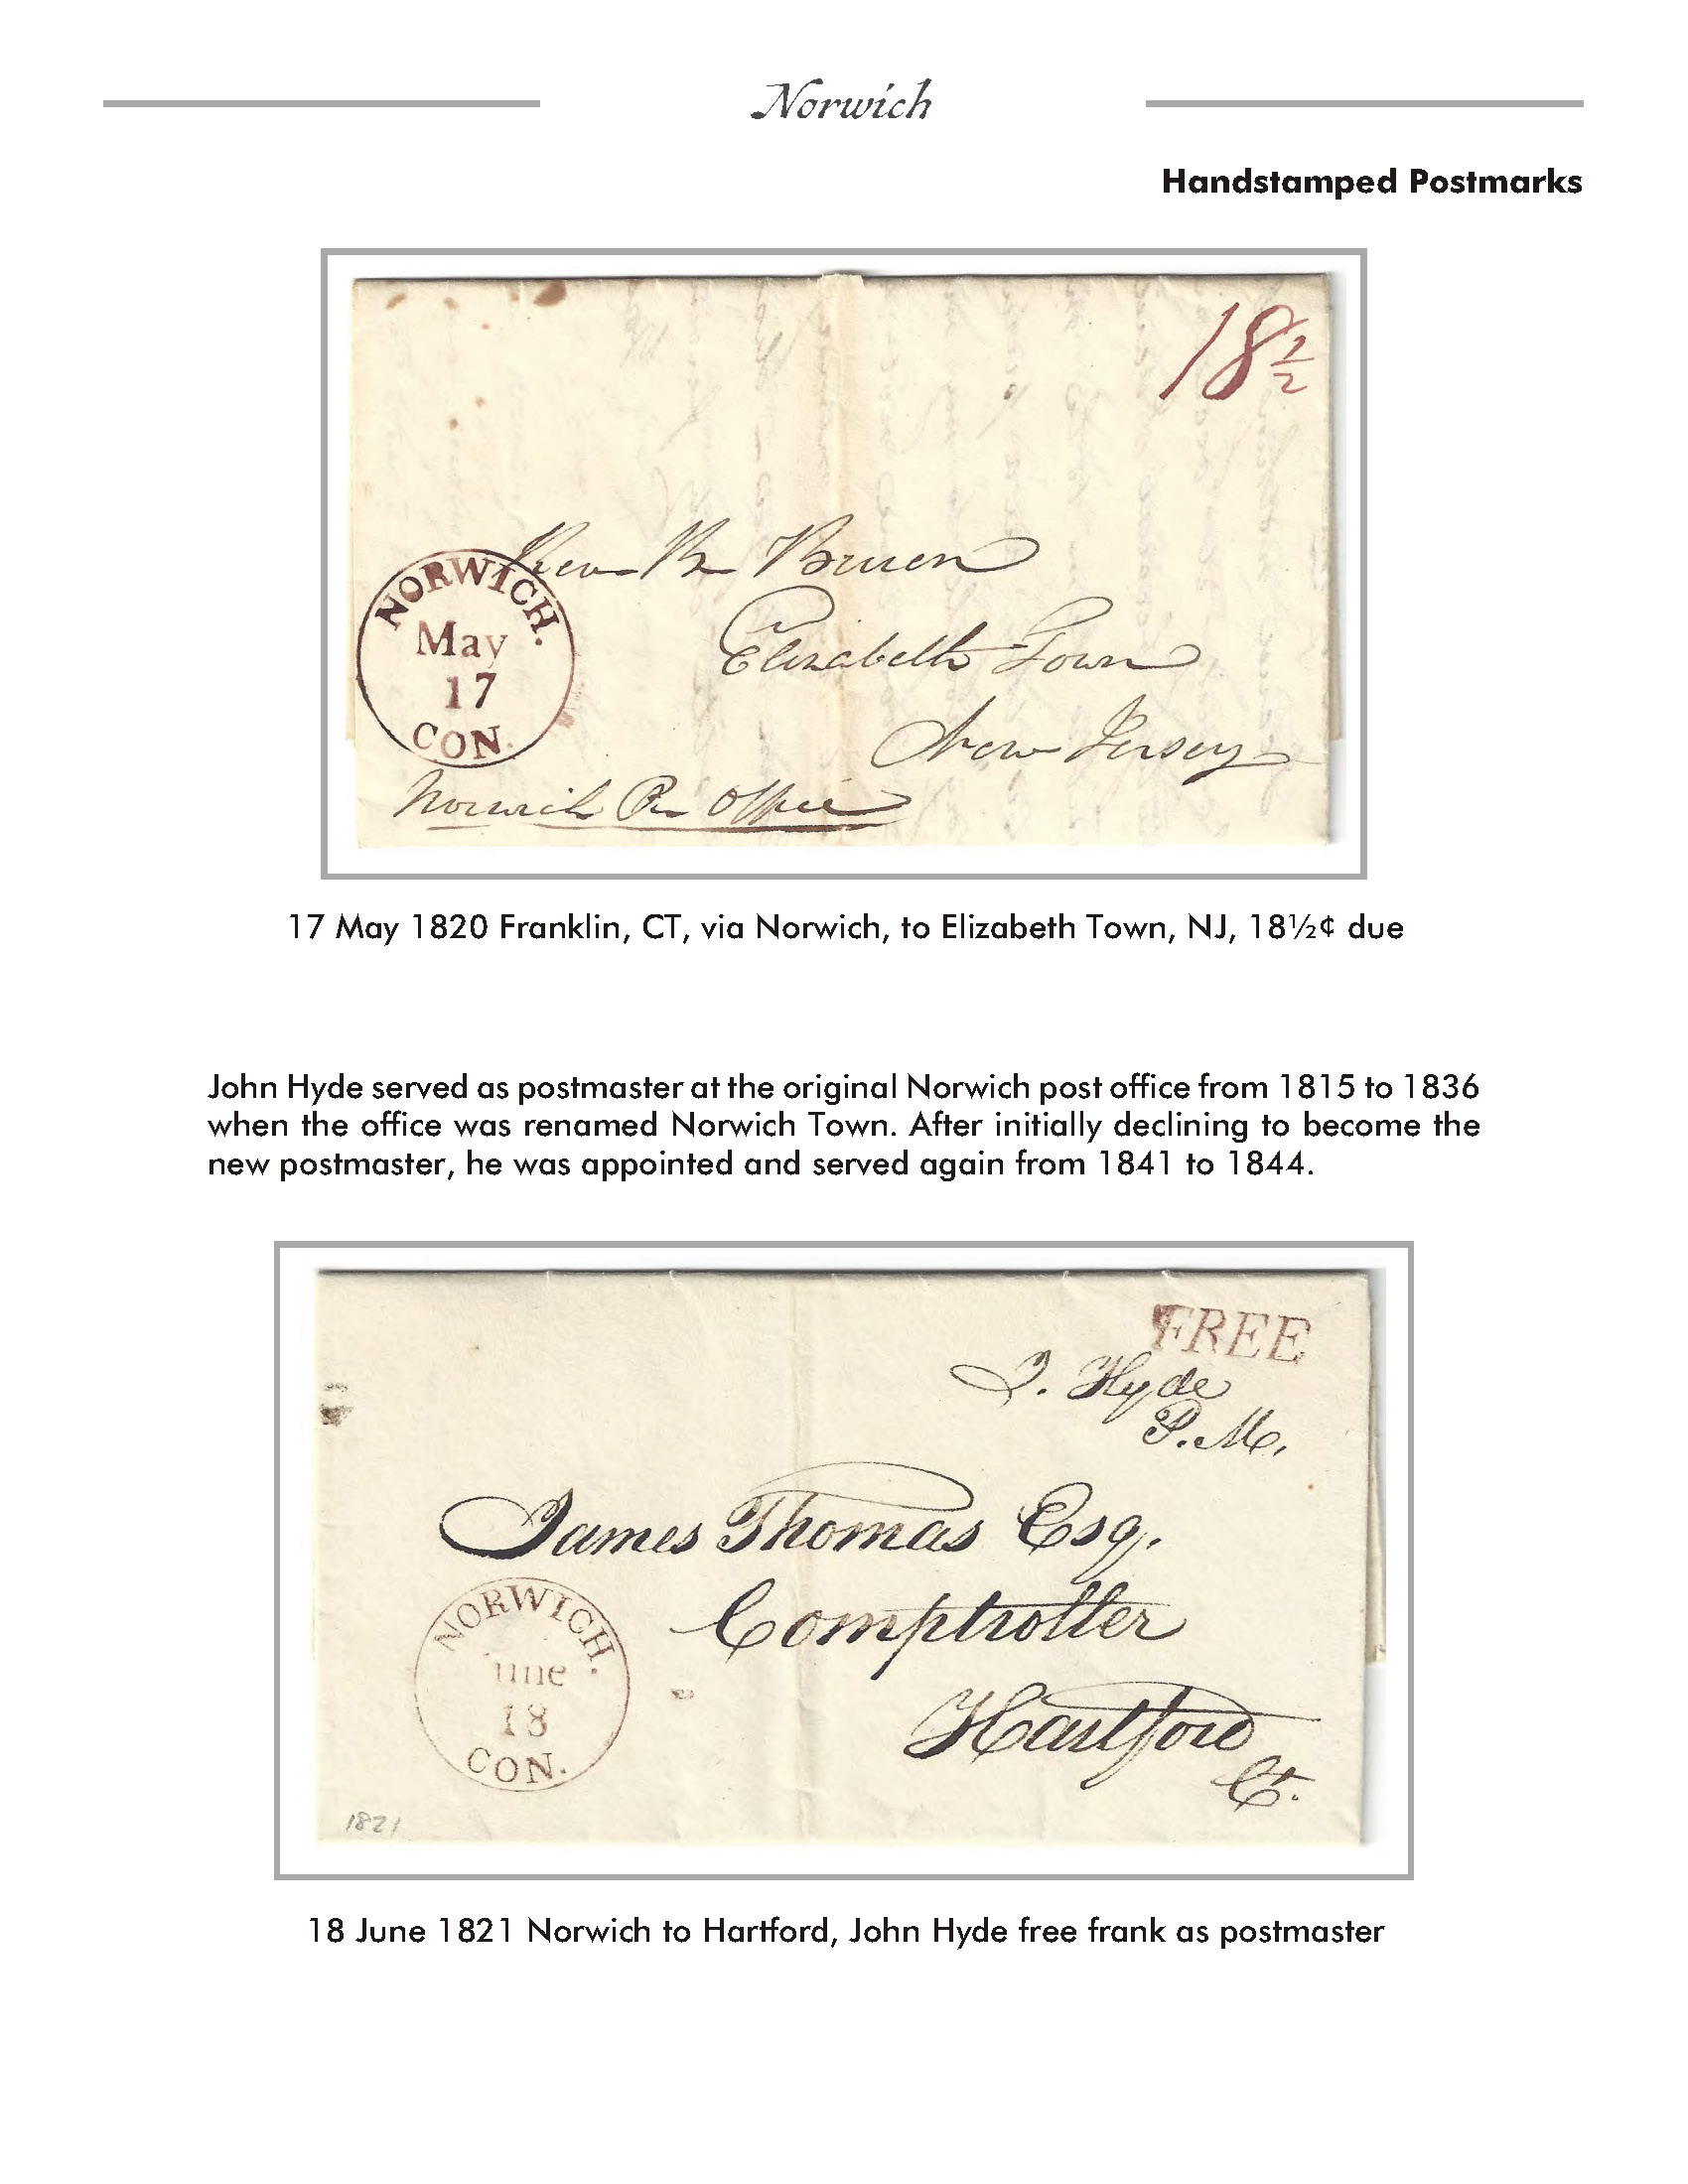 Norwich
Handstamped Postmarks
18 1/2
Rev Bruen
NORWICH.
May
17
CON.
Elizabeth Town
New Jersey
Norwich Office
17 May 1820 Franklin, CT, via Norwich, to Elizabeth Town, NJ, 18½¢ due
John Hyde served as postmaster at the original Norwich post office from 1815 to 1836
when the office was renamed Norwich Town. After initially declining to become the
new postmaster, he was appointed and served again from 1841 to 1844.
FREE
J. Hyde
P.M.
James Thomas Esq.
Comptroller
Hartford
Ct.
NORWICH.
une
18
CON.
1821
18 June 1821 Norwich to Hartford, John Hyde free frank as postmaster